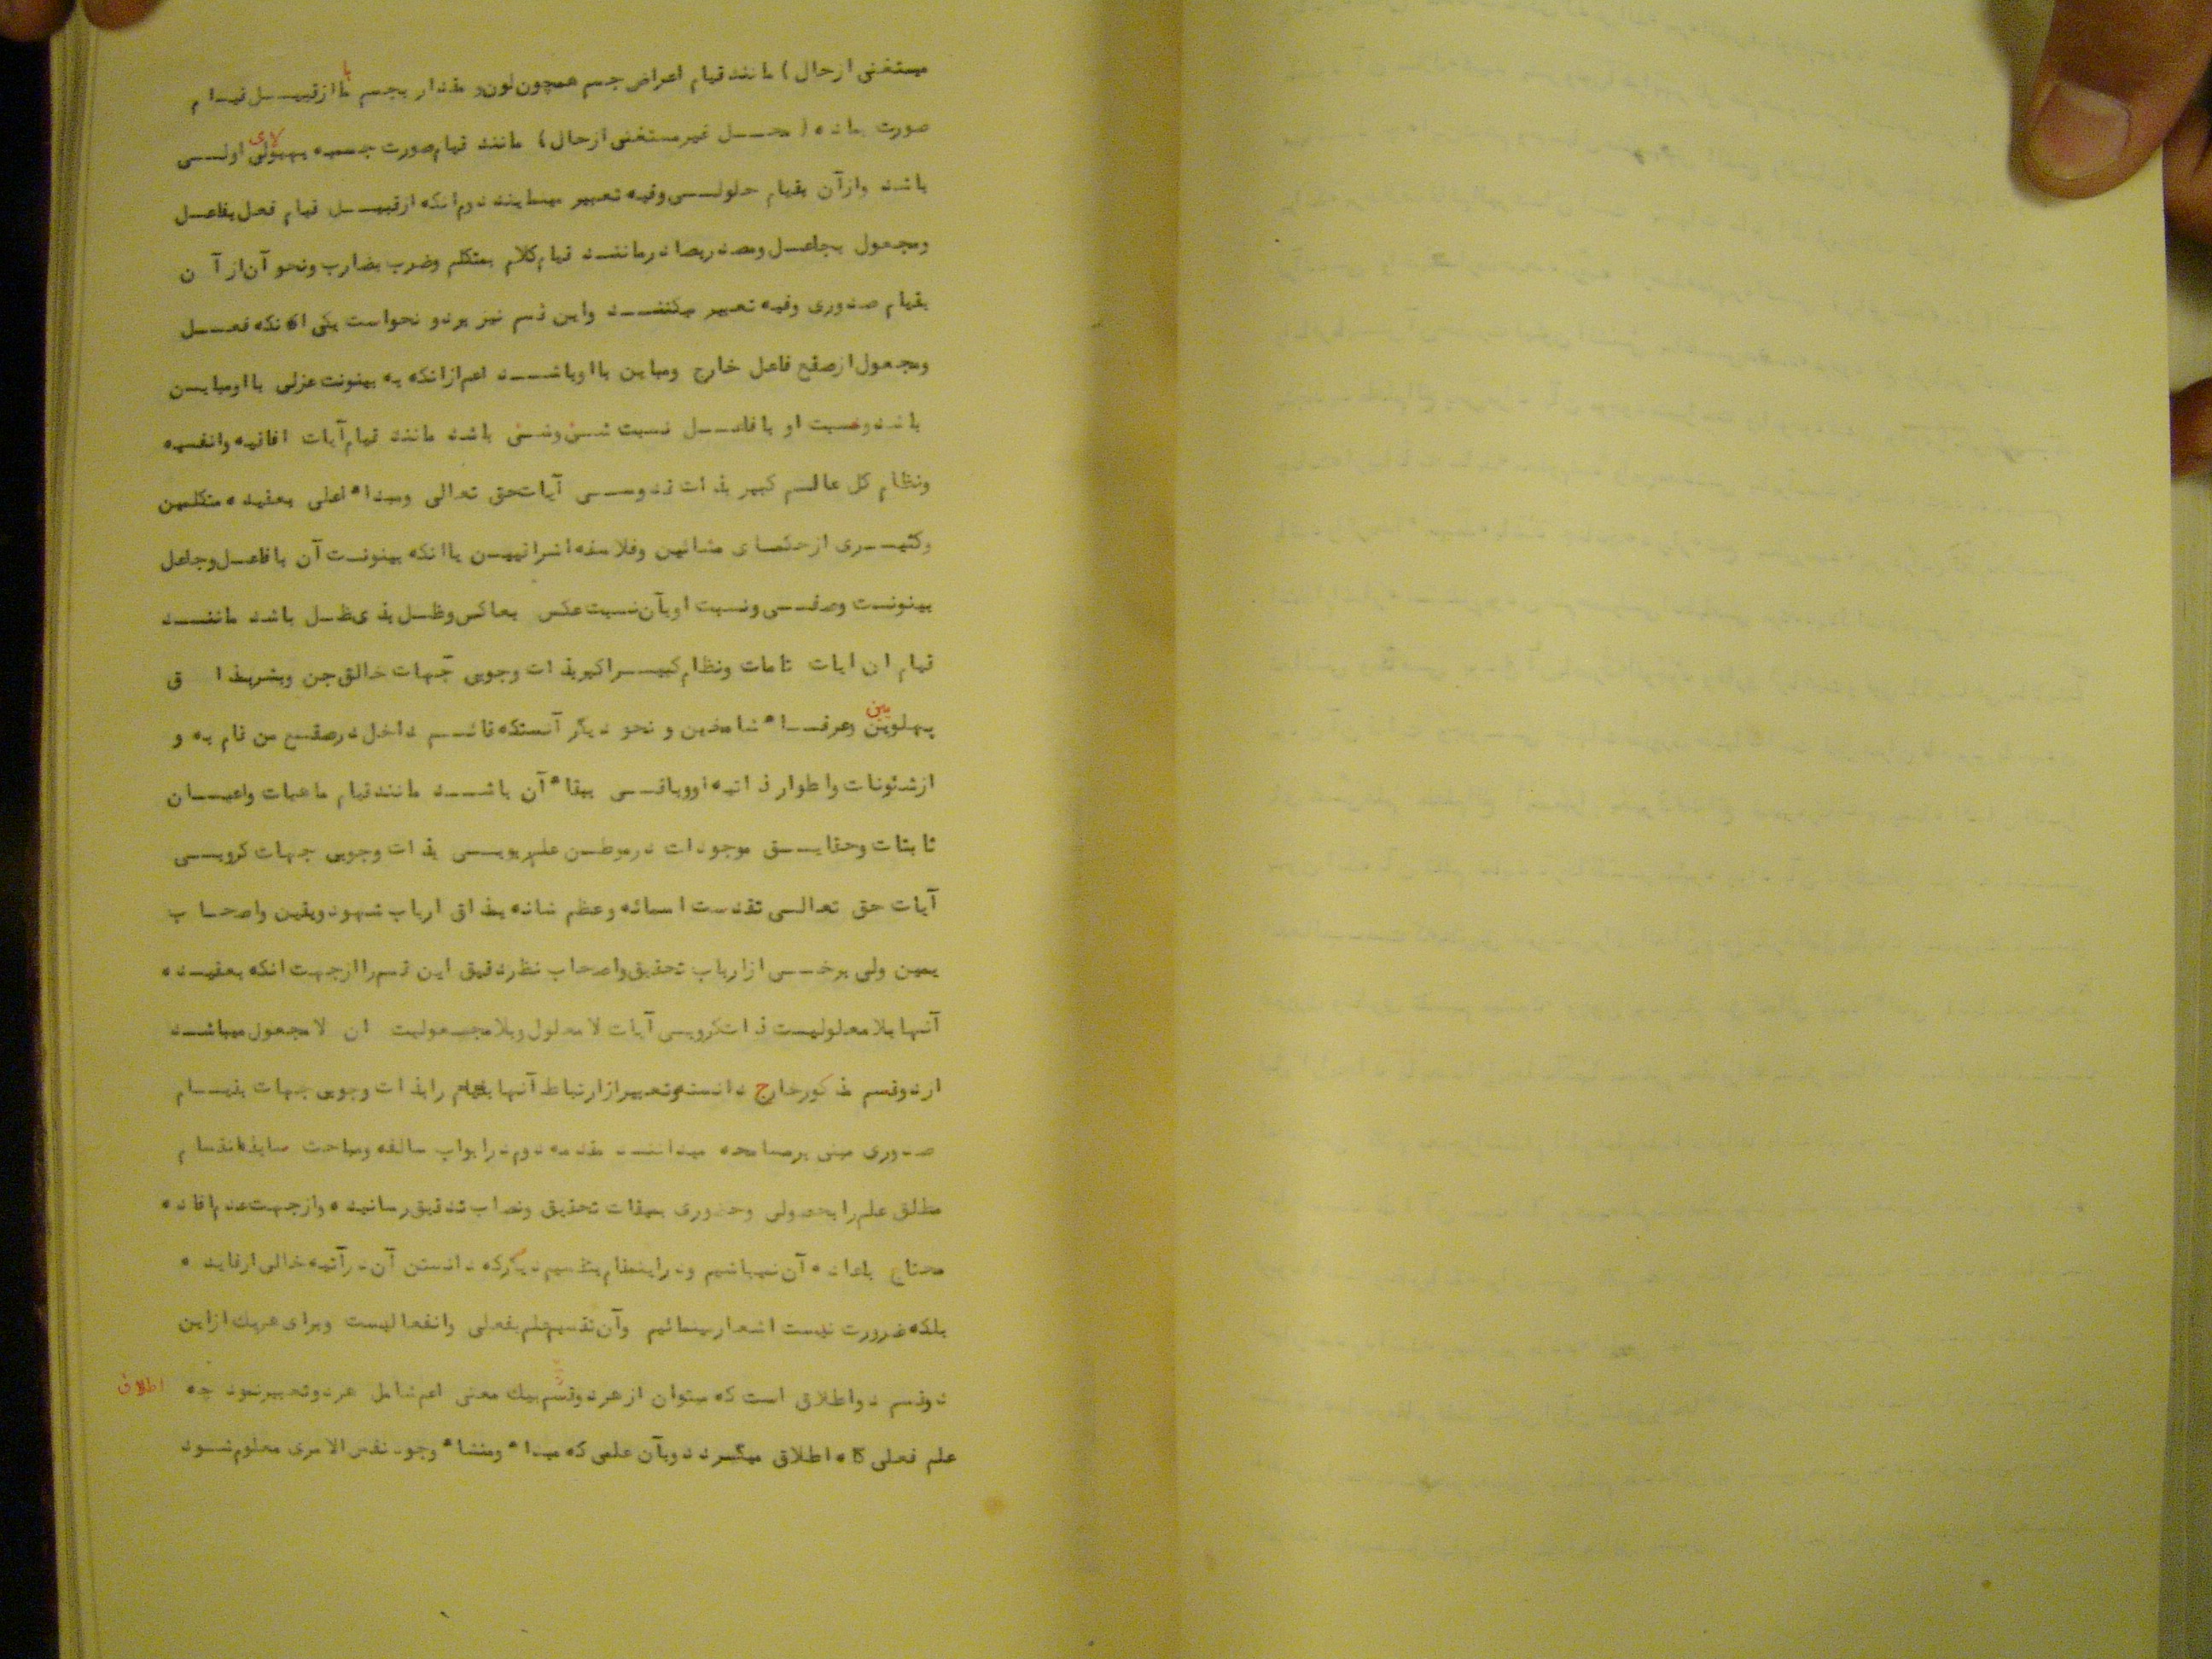 مستغنی ازحال) مانند قیام اعراض جسم همچون لون و مقدار بجسم یا ازقبیــل قیــام
صورت بماده (محــل غیرمستغنی ازحال) مانند قیام صورت جسمیه بهیولای اولــی
باشد وازآن بقیام حلولــی وفیه تعبیر مینمایند دوم انکه ازقبیــل قیام فعل بفاعــل
ومجعول بجاعــل ومصدر بصادر ماننــد قیام کلام بمتکلم وضرب بضارب ونحو آن از آن
بقیام صدوری وفیه تعبیر میکننــد واین قسم نیز بردو نحواست یکی انکه فعــل
ومجعول ازصقع فاعل خارج ومباین بااوباشــد اعم ازانکه به بینونت عزلی بااومبایــن
باشد ونسبت او بافاعــل نسبت شــئ وشــئ باشد مانند قیام آیات افاقیه وانفسیه
ونظام کل عالــم کبیر بذات قدوســی آیات حق تعالی ومبداء اعلی بعقیده متکلمین
وکثیــری ازحکمای مشائین وفلاسفه اشراقییــن یاانکه بینونــت آن بافاعــل وجاعل
بینونــت وصفــی ونسبت اوبآن نسبت عکس بعاکس وظــل بذی ظــل باشد ماننــد
قیام ان ایات تامات ونظام کبیــر اکبر بذات وجوبی جهات خالق جن وبشر بمذاق
پهلویین وعرفــاء شامخین و نحو دیگر آنستکه قائــم داخل درصقــع من قام به و
ازشئونات واطوار ذاتیه اووباقــی ببقاء آن باشــد مانند قیام ماهیات واعیــان
ثابتات وحقایــق موجودات درموطــن علم ربوبــی بذات وجوبی جهات کروبــی
آیات حق تعالــی تقدست اسمائه وعظم شانه بمذاق ارباب شهود ویقین واصحاب
یمین ولی برخــی ازارباب تحقیق واصحاب نظردقیق این قسم راازجهت انکه بعقیــده
آنها بلامعلولیــت ذات کروبــی آیات لامعلول وبلامجــعولیت ان لامجعول میباشــد
ازدوقسم مذکور خارج دانسته وتعبیر ازارتباط آنها رابذات وجوبی جهات بقیــام
صدوری مبنی برمسامحه میداننــد مقدمه دوم درابواب سالفه ومباحث سابقه انقسام
مطلق علم رابحصولی وحضوری بمیقات تحقیق ونصاب تدقیق رسانیده وازجهت عدم افاده
محتاج باعاده آن نمیباشیم ودراینمقام بتقسیم دیگرکه دانستن آن درآتیه خالی ازفایده
بلکه ضرورت نیست اشعار مینمائیم وآن تقسیم علم بفعلی وانفعالیست وبرای هریك ازاین
دوقسم دواطلاق است که میتوان ازهردوقسم بیك معنی اعم شامل هردوتعبیرنمود چه اطلاق
علم فعلی گاه اطلاق میگــردد وبآن علمی که مبداء ومنشاء وجود نفس الامری معلوم شــود